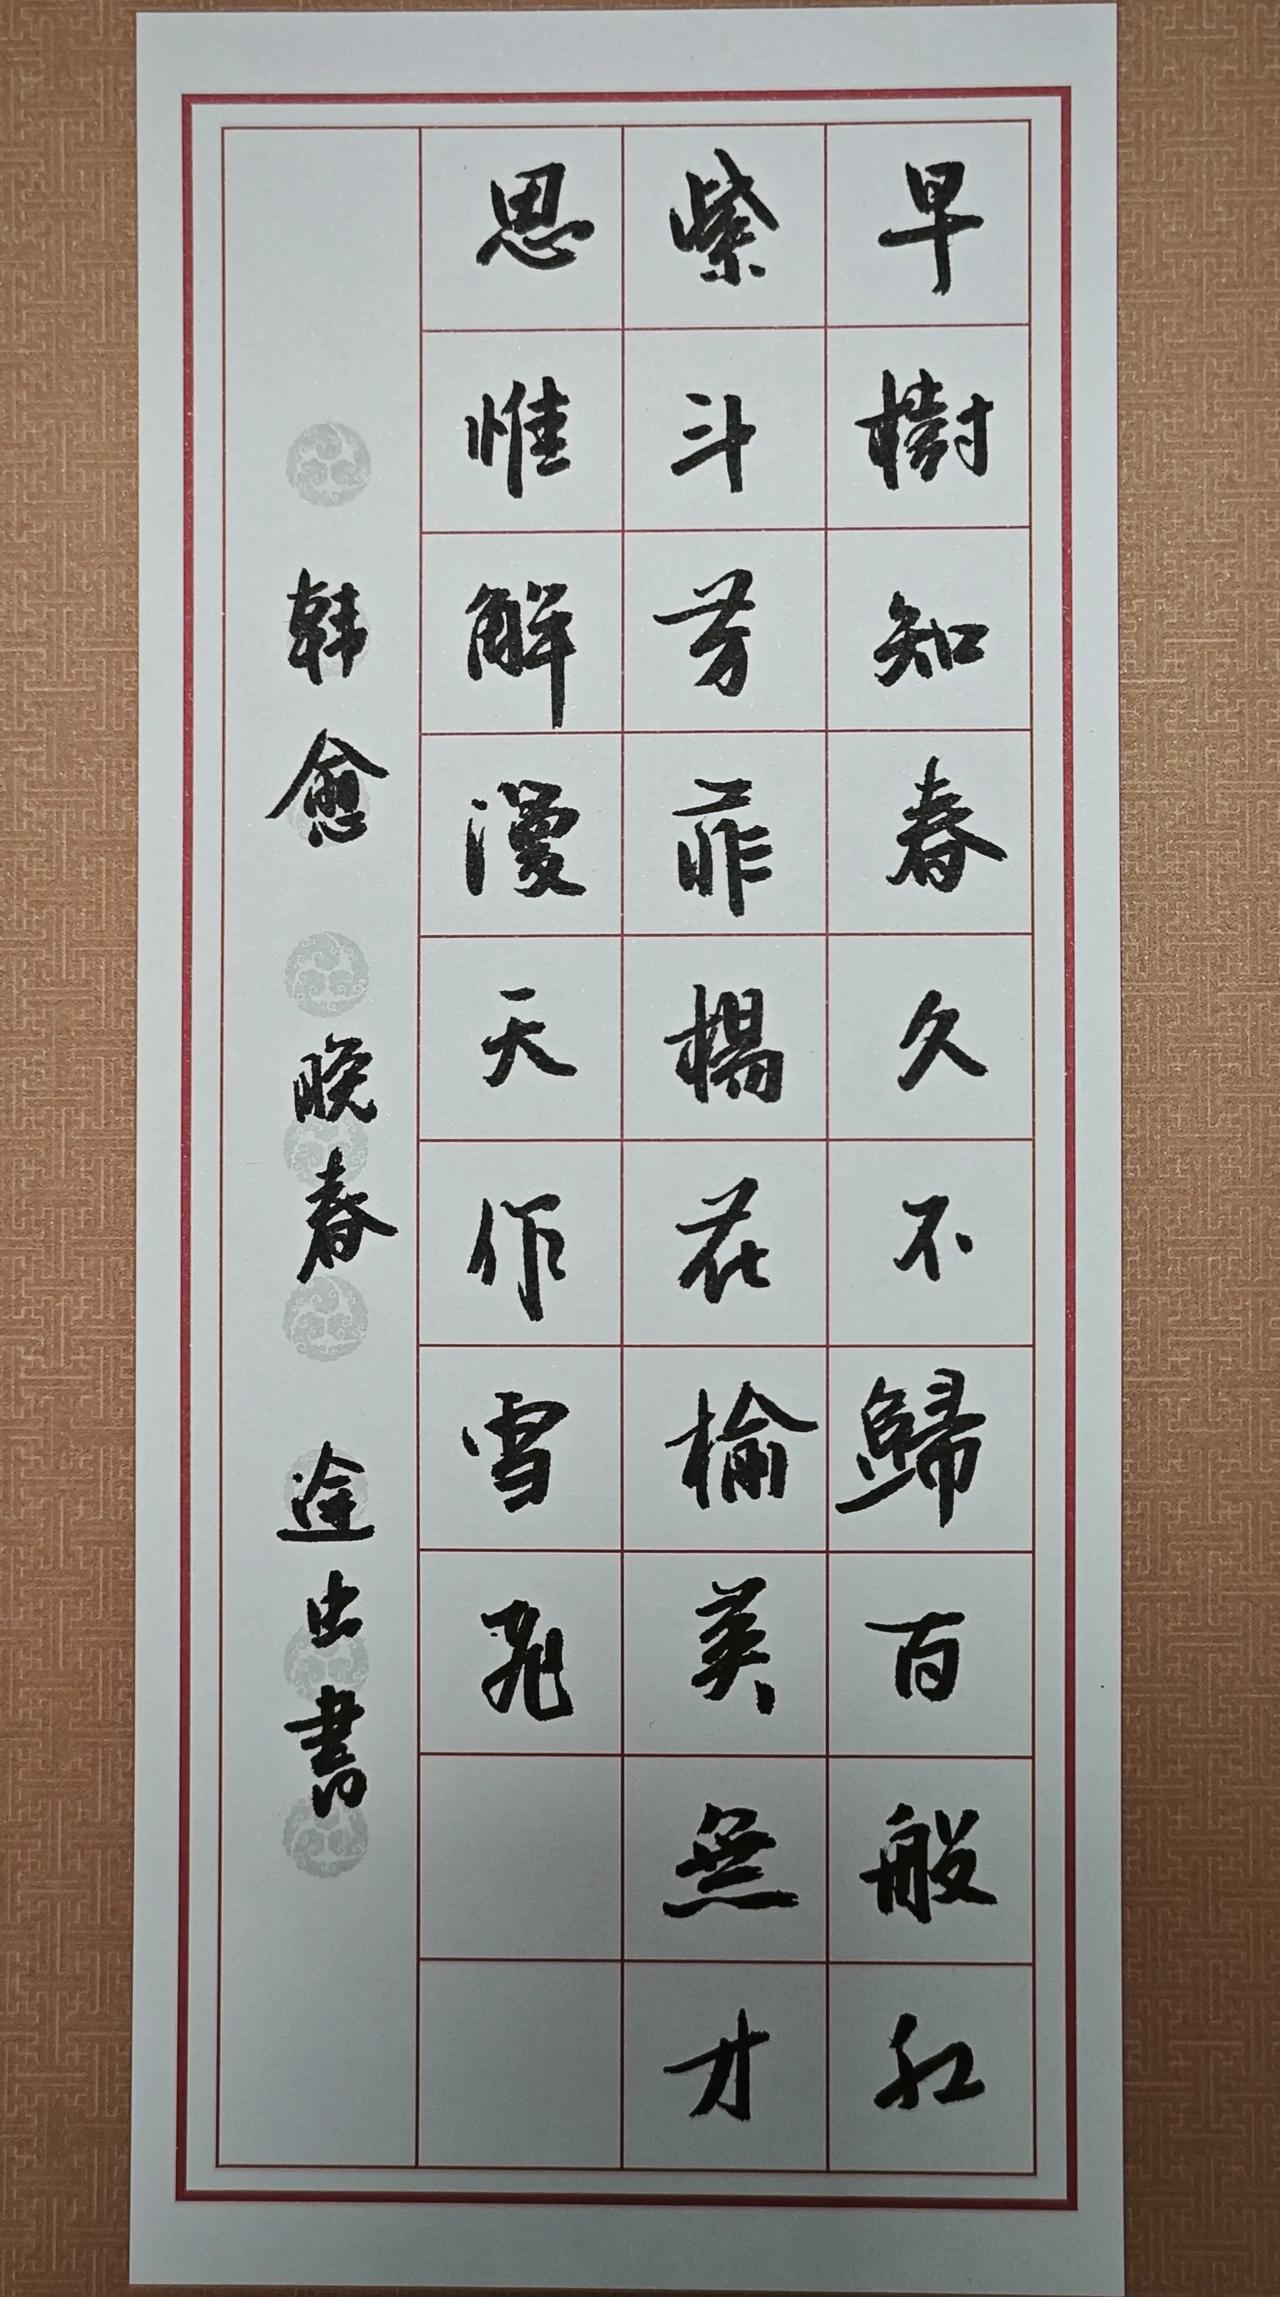 早樹知春久不歸百般紅
紫斗芳菲楊花榆莢無才
思惟解漫天作雪飛
韩愈 晚春 書